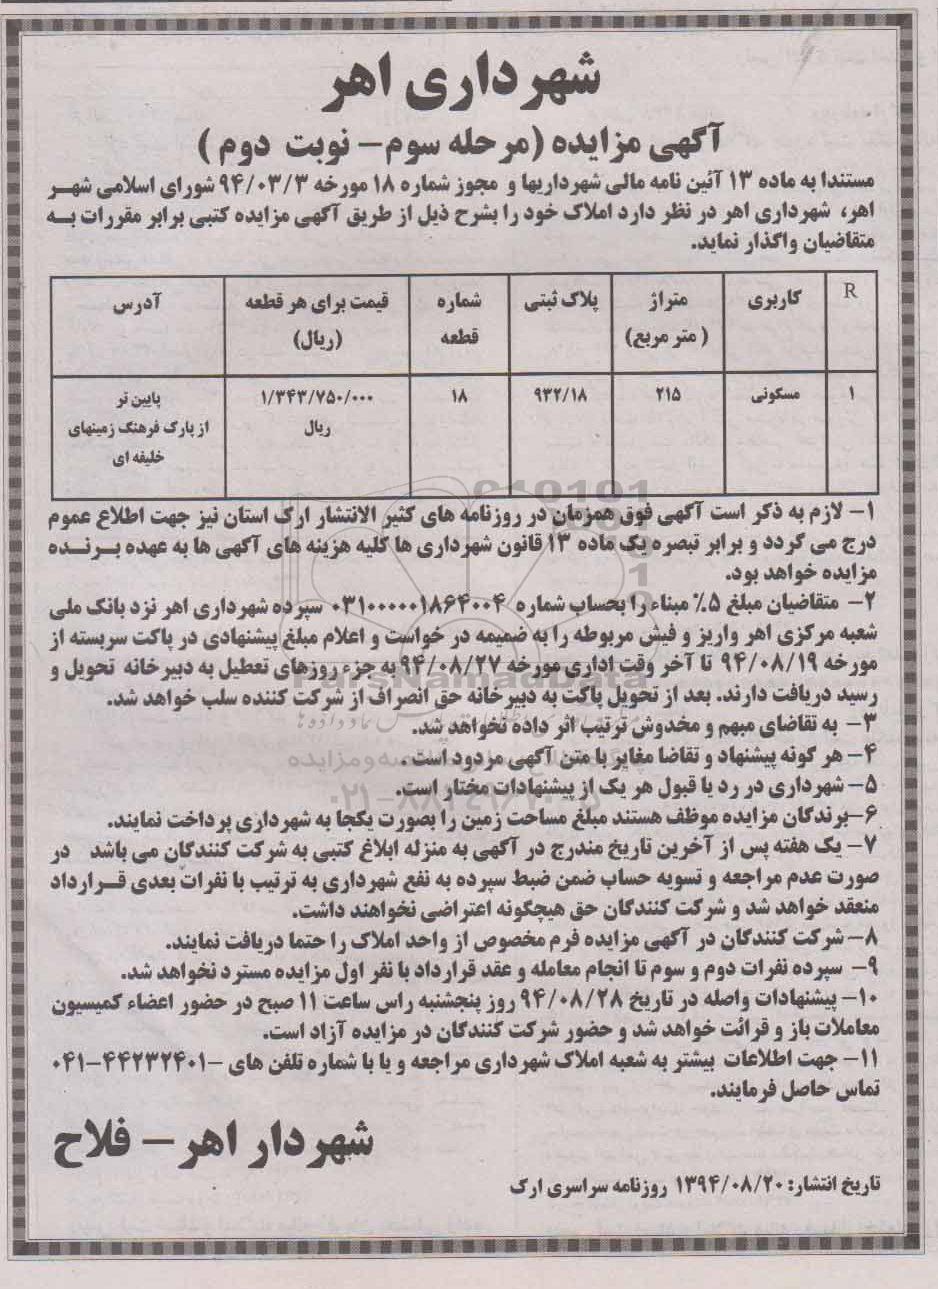 شهرداری اهر
آگهی مزایده (مرحله سوم- نوبت دوم )
مستندا به ماده ۱۳ آئین نامه مالی شهرداریها و مجوز شماره ۱۸ مورخه ۹۴/۰۳/۳ شورای اسلامی شهر
اهر، شهرداری اهر در نظر دارد املاک خود را بشرح ذیل از طریق آگهی مزایده کتبی برابر مقررات به
متقاضیان واگذار نماید.
R کاربری متراژ (متر مربع) پلاک ثبتی شماره قطعه قیمت برای هر قطعه (ریال) آدرس
۱ مسکونی ۲۱۵ ۹۳۲/۱۸ ۱۸ ۱/۳۴۳/۷۵۰/۰۰۰ ریال پایین تر از پارک فرهنگ زمینهای خلیفه ای
۱- لازم به ذکر است آگهی فوق همزمان در روزنامه های کثیر الانتشار ارک استان نیز جهت اطلاع عموم
درج می گردد و برابر تبصره یک ماده ۱۳ قانون شهرداری ها کلیه هزینه های آگهی ها به عهده برنده
مزایده خواهد بود.
۲- متقاضیان مبلغ ۵٪ مبناء را بحساب شماره ۰۳۱۰۰۰۰۰۱۸۶۴۰۰۴ سپرده شهرداری اهر نزد بانک ملی
شعبه مرکزی اهر واریز و فیش مربوطه را به ضمیمه در خواست و اعلام مبلغ پیشنهادی در پاکت سربسته از
مورخه ۹۴/۰۸/۱۹ تا آخر وقت اداری مورخه ۹۴/۰۸/۲۷ به جزء روزهای تعطیل به دبیرخانه تحویل و
رسید دریافت دارند. بعد از تحویل پاکت به دبیرخانه حق انصراف از شرکت کننده سلب خواهد شد.
۳- به تقاضای مبهم و مخدوش ترتیب اثر داده نخواهد شد.
۴- هر گونه پیشنهاد و تقاضا مغایر با متن آگهی مردود است .
۵- شهرداری در رد یا قبول هر یک از پیشنهادات مختار است.
۶-برندگان مزایده موظف هستند مبلغ مساحت زمین را بصورت یکجا به شهرداری پرداخت نمایند.
۷- یک هفته پس از آخرین تاریخ مندرج در آگهی به منزله ابلاغ کتبی به شرکت کنندگان می باشد در
صورت عدم مراجعه و تسویه حساب ضمن ضبط سپرده به نفع شهرداری به ترتیب با نفرات بعدی قرارداد
منعقد خواهد شد و شرکت کنندگان حق هیچگونه اعتراضی نخواهند داشت.
۸- شرکت کنندگان در آگهی مزایده فرم مخصوص از واحد املاک را حتما دریافت نمایند.
۹- سپرده نفرات دوم و سوم تا انجام معامله و عقد قرارداد با نفر اول مزایده مسترد نخواهد شد.
۱۰- پیشنهادات واصله در تاریخ ۹۴/۰۸/۲۸ روز پنجشنبه راس ساعت ۱۱ صبح در حضور اعضاء کمیسیون
معاملات باز و قرائت خواهد شد و حضور شرکت کنندگان در مزایده آزاد است.
۱۱- جهت اطلاعات بیشتر به شعبه املاک شهرداری مراجعه و یا با شماره تلفن های -۴۴۲۳۲۴۰۱-۰۴۱
تماس حاصل فرمایند.
شهردار اهر - فلاح
تاریخ انتشار: ۱۳۹۴/۰۸/۲۰ روزنامه سراسری ارک